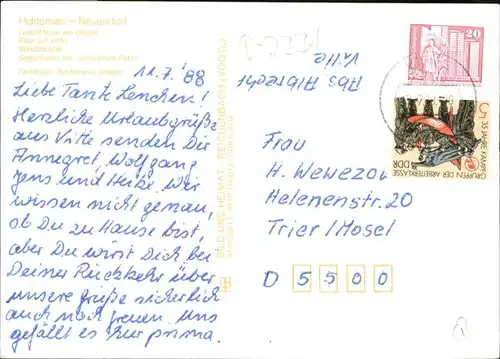 Hiddensee – Neuendorf
Leuchtturm am Gellen
Blick auf Vitte
Windflüchter
11.7.'88
Liebe Tante Lenchen!
Herzliche Urlaubsgrüße
aus Vitte senden Dir
Annegret, Wolfgang
Jens und Heike. Wir
wissen nicht genau,
ob Du zu Hause bist,
aber Du wirst Dich bei
Deiner Rückkehr über
unsere Grüße sicherlich
auch noch freuen. Uns
gefällt es hier prima.
BILD UND HEIMAT REICHENBACH (VOGTL)
Vitte
20
35 JAHRE KAMPF-
GRUPPEN DER ARBEITERKLASSE
DDR
5
Frau
H. Wewezow
Helenenstr. 20
Trier/Mosel
D 5500